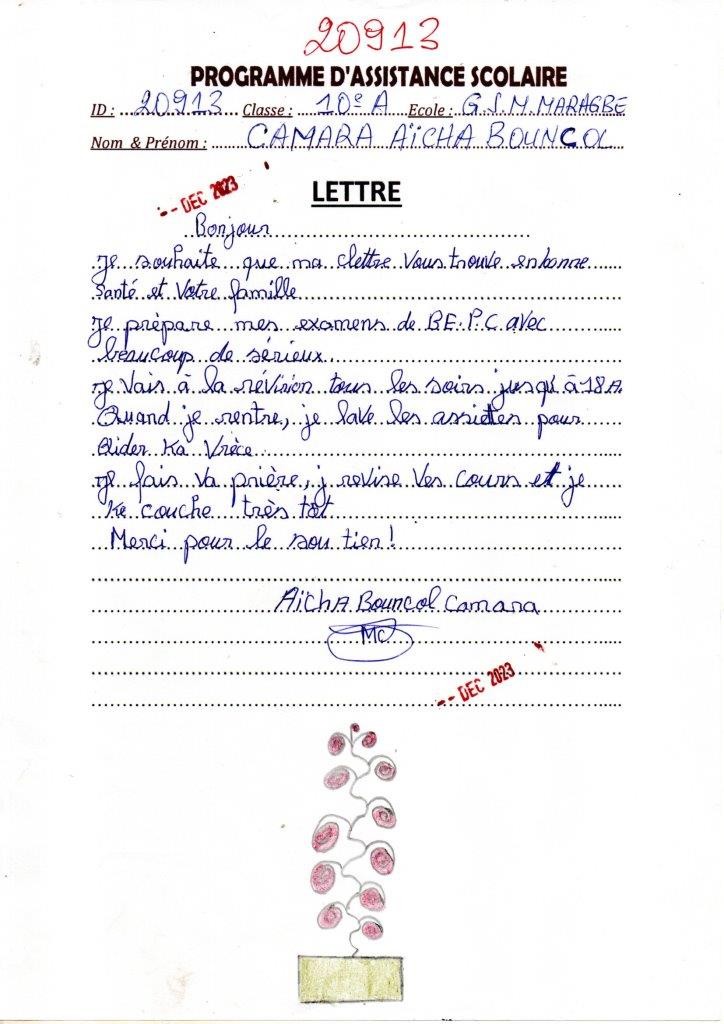 20913
PROGRAMME D'ASSISTANCE SCOLAIRE
ID : 20913 Classe : 10º A Ecole : G.S.M.MARAGBE
Nom & Prénom : CAMARA AïCHA BOUNCOL
-- DEC 2023
LETTRE
Bonjour
Je souhaite que ma clettre vous trouve en bonne
santé et votre famille
Je prépare mes examens de B.E.P.C avec
beaucoup de sérieux
Je vais à la révision tous les soirs jusqu'à 18
Quand je rentre, je lave les assiettes pour
Ka
Je fais va prière, j revise ves cours et je
Ke couche très tôt
Merci pour le sou tien !
Aïcha Bouncol Camara
MC
-- DEC 2023